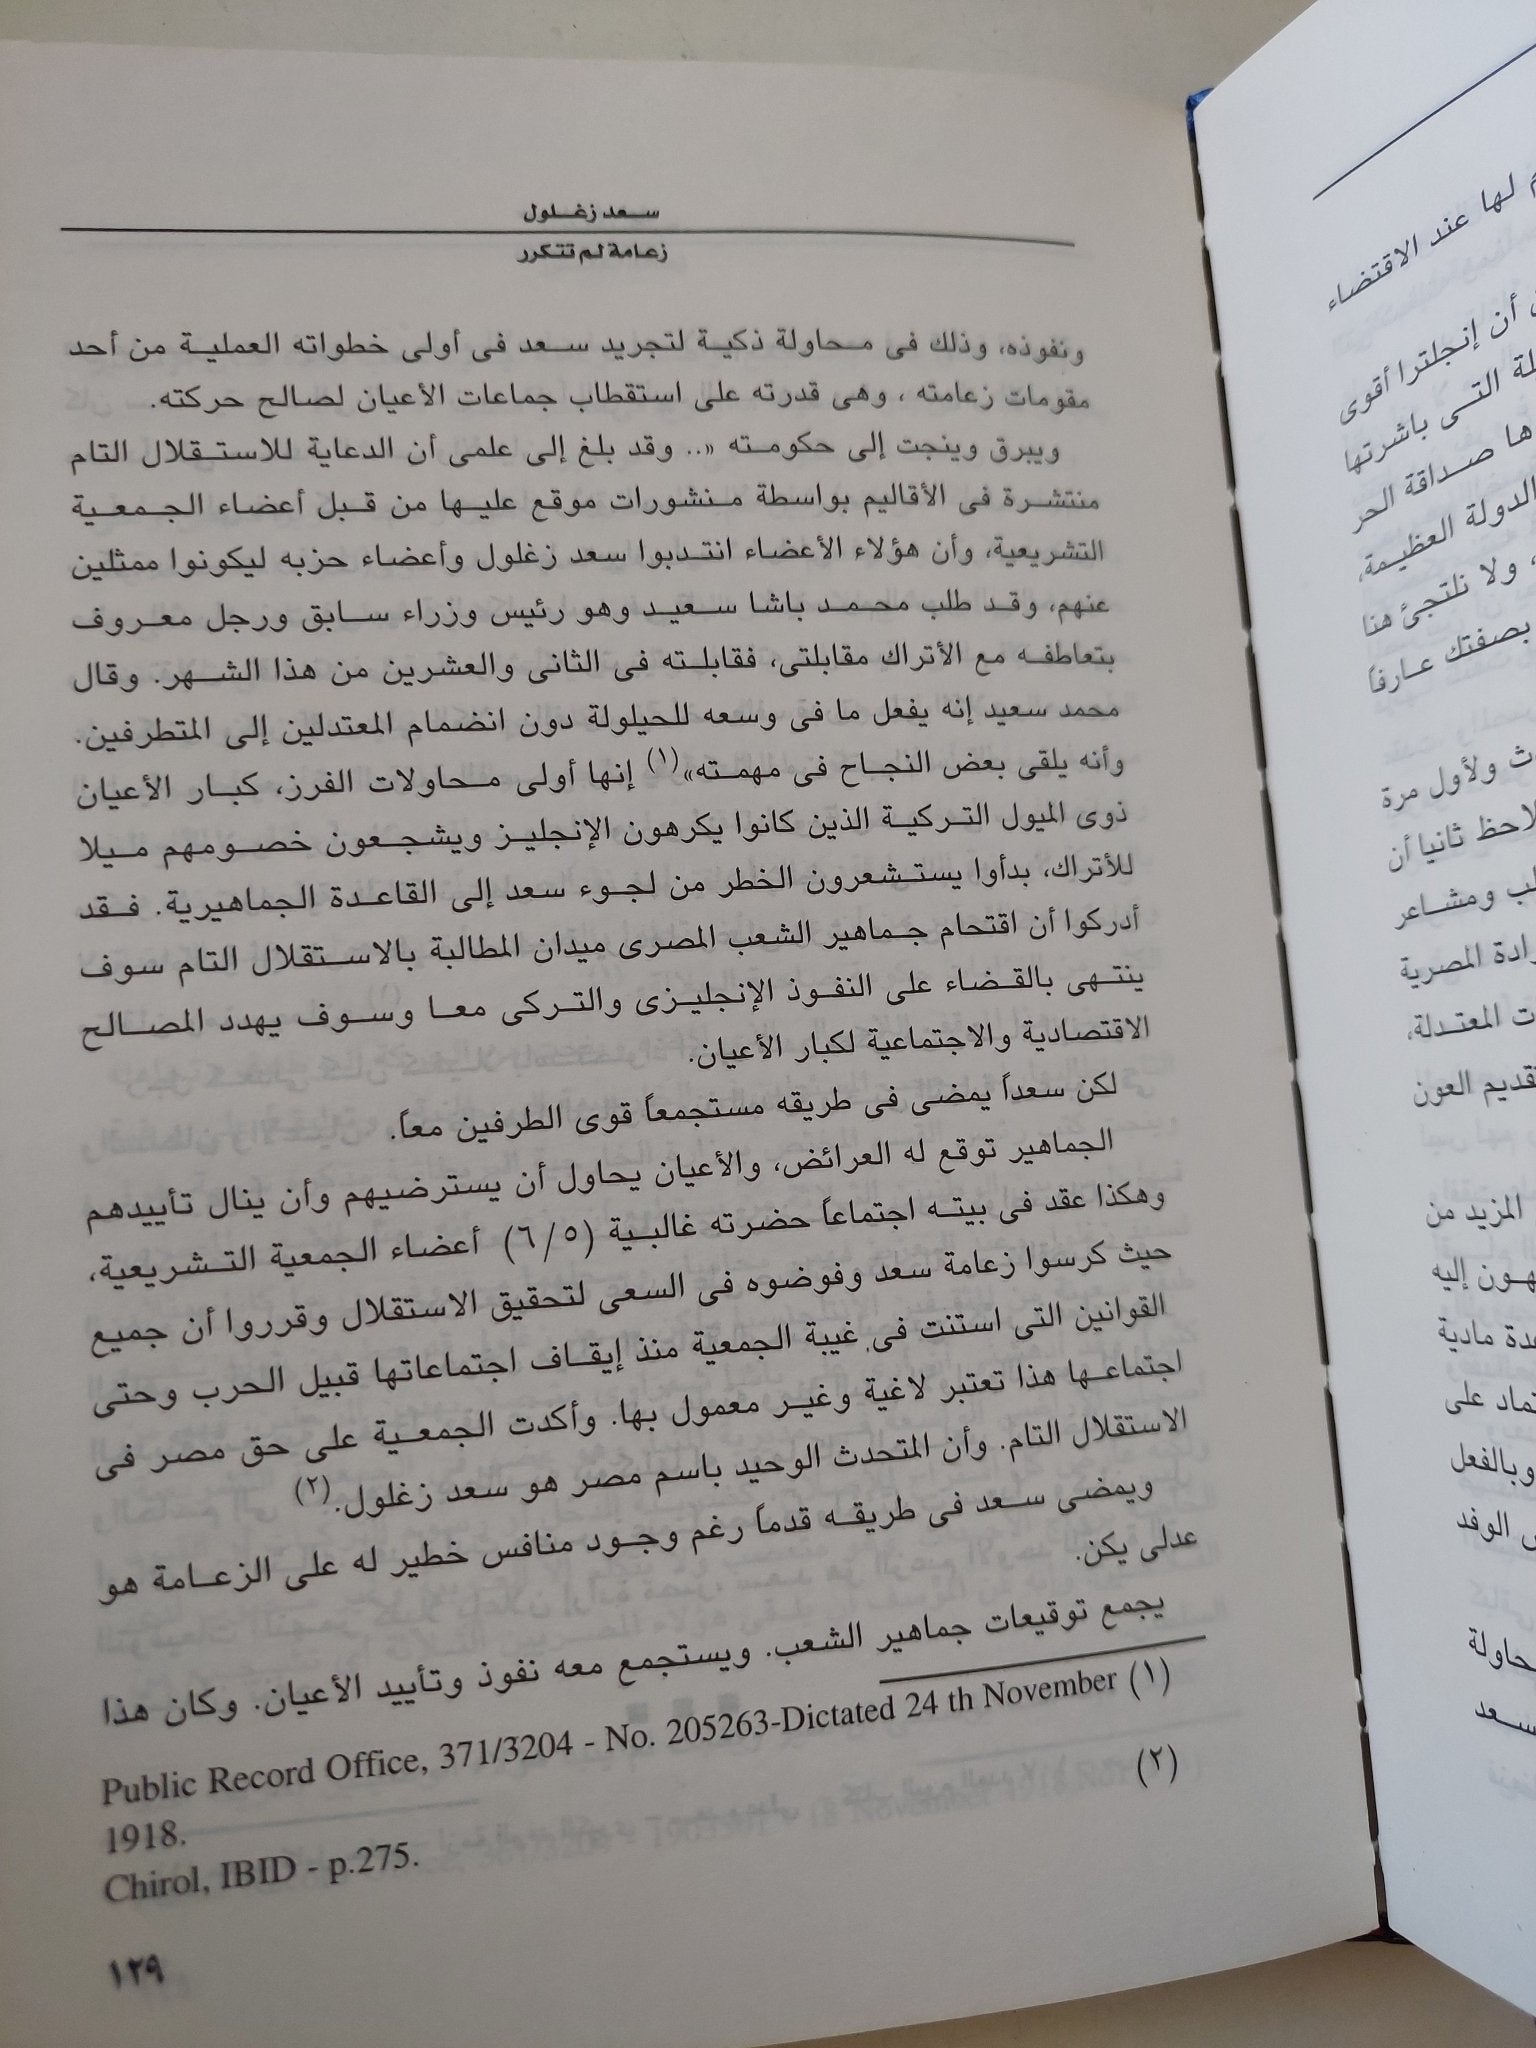 سعد زغلول
زعامة لم تتكرر
ونفوذه، وذلك فى محاولة ذكية لتجريد سعد فى أولى خطواته العملية من أحد
مقومات زعامته ، وهى قدرته على استقطاب جماعات الأعيان لصالح حركته.
ويبرق وينجت إلى حكومته «.. وقد بلغ إلى علمى أن الدعاية للاستقلال التام
منتشرة فى الأقاليم بواسطة منشورات موقع عليها من قبل أعضاء الجمعية
التشريعية، وأن هؤلاء الأعضاء انتدبوا سعد زغلول وأعضاء حزبه ليكونوا ممثلين
عنهم، وقد طلب محمد باشا سعيد وهو رئيس وزراء سابق ورجل معروف
بتعاطفه مع الأتراك مقابلتى، فقابلته فى الثانى والعشرين من هذا الشهر. وقال
محمد سعيد إنه يفعل ما فى وسعه للحيلولة دون انضمام المعتدلين إلى المتطرفين.
وأنه يلقى بعض النجاح فى مهمته»(١) إنها أولى محاولات الفرز، كبار الأعيان
ذوى الميول التركية الذين كانوا يكرهون الإنجليز ويشجعون خصومهم ميلا
للأتراك، بدأوا يستشعرون الخطر من لجوء سعد إلى القاعدة الجماهيرية. فقد
أدركوا أن اقتحام جماهير الشعب المصرى ميدان المطالبة بالاستقلال التام سوف
ينتهى بالقضاء على النفوذ الإنجليزى والتركى معا وسوف يهدد المصالح
الاقتصادية والاجتماعية لكبار الأعيان.
لكن سعداً يمضى فى طريقه مستجمعاً قوى الطرفين معاً.
الجماهير توقع له العرائض، والأعيان يحاول أن يسترضيهم وأن ينال تأييدهم
وهكذا عقد فى بيته اجتماعاً حضرته غالبية (٦/٥) أعضاء الجمعية التشريعية،
حيث كرسوا زعامة سعد وفوضوه فى السعى لتحقيق الاستقلال وقرروا أن جميع
القوانين التى استنت فى غيبة الجمعية منذ إيقاف اجتماعاتها قبيل الحرب وحتى
اجتماعها هذا تعتبر لاغية وغير معمول بها. وأكدت الجمعية على حق مصر فى
الاستقلال التام. وأن المتحدث الوحيد باسم مصر هو سعد زغلول.(٢)
ويمضى سعد فى طريقه قدماً رغم وجود منافس خطير له على الزعامة هو
عدلى يكن.
يجمع توقيعات جماهير الشعب. ويستجمع معه نفوذ وتأييد الأعيان. وكان هذا
(١) Public Record Office, 371/3204 - No. 205263-Dictated 24 th November
1918.
(٢)
Chirol, IBID - p.275.
١٢٩
لها عند الاقتضاء
أن إنجلترا أقوى
التى باشرتها
صداقة الحر
الدولة العظيمة،
ولا نلتجئ هنا
بصفتك عارفاً
ولأول مرة
ثانيا أن
ومشاعر
المصرية
المعتدلة،
تقديم العون
المزيد من
إليه
مادية
على
وبالفعل
الوفد
سعد